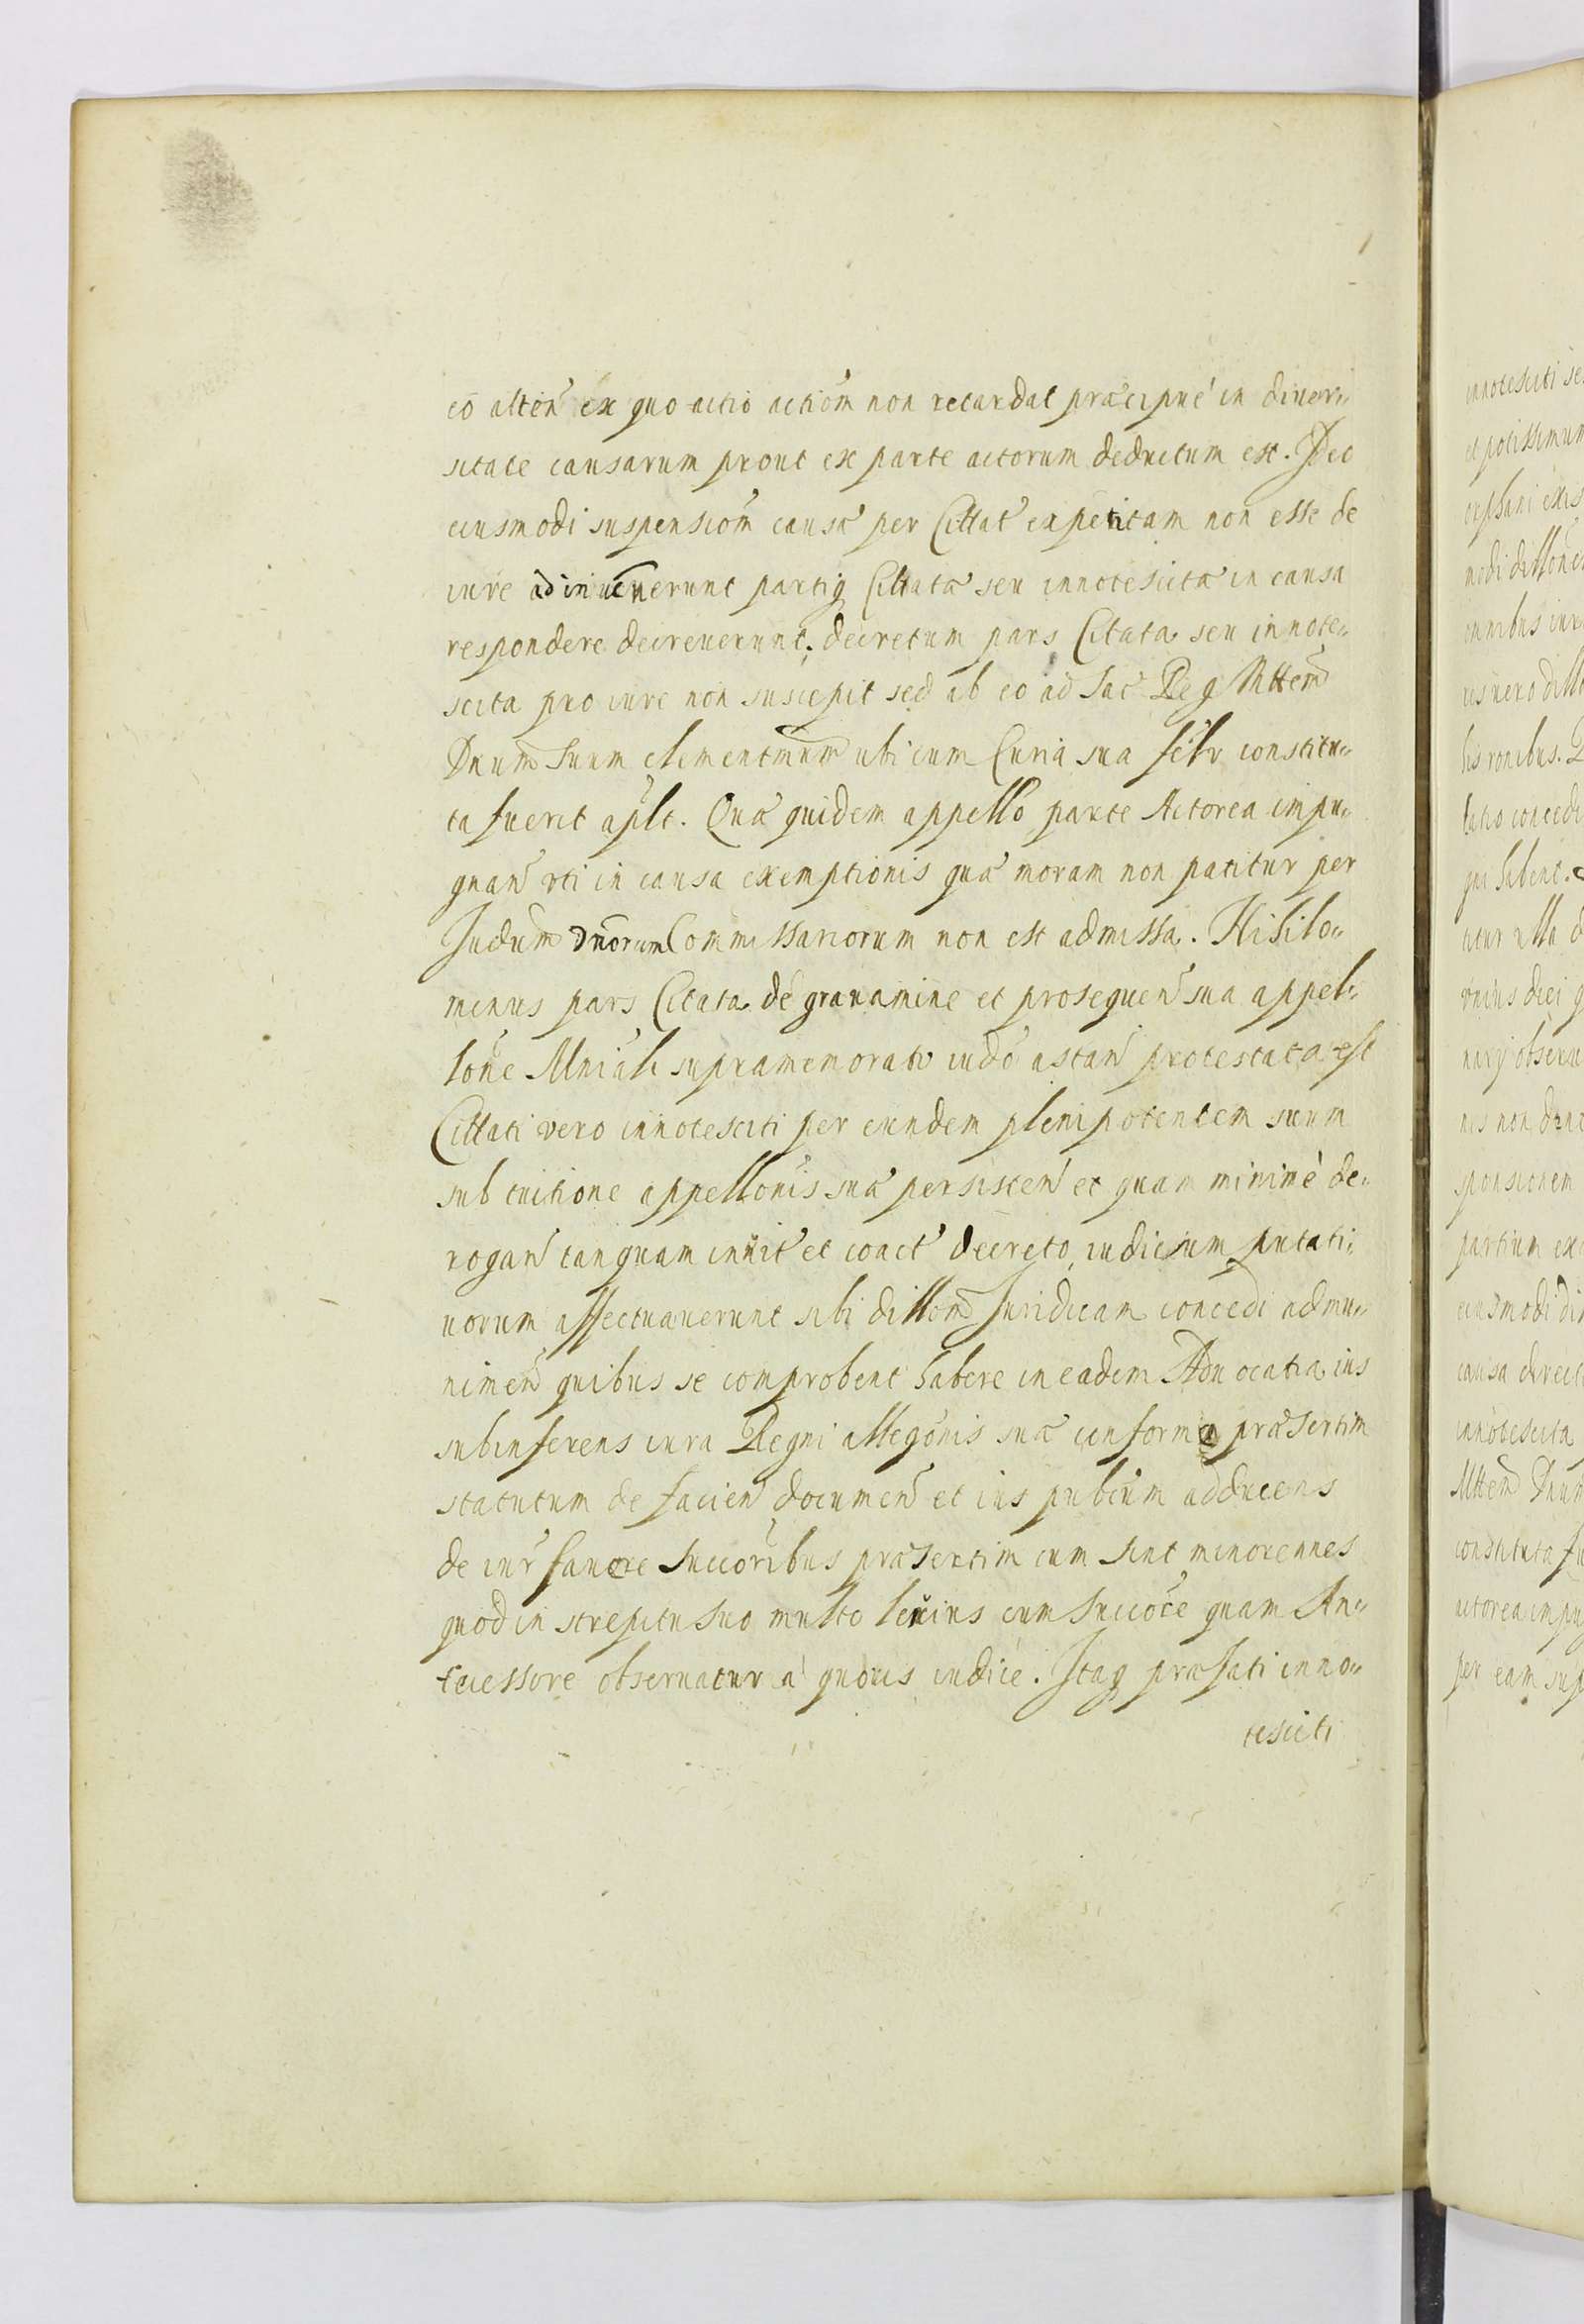 eō alteñ ex quo actio actiōm non retardat præcipuè in diuer„
sitate causarum prout ex parte actorum deductum est. Ideo
eiusmodi suspensiōm causæ per Cittat̃ expetitam non esse de
iure adinuenerunt partiq Cittatæ seu innotescitæ in causa
respondere decreuerunt; decretum pars Citata seu innote„
scita pro iure non suscepit sed ab eo ad Sac̃ Reg Mttem
Dnum Suum clementmum ubi cum Curia sua felr constitu„
ta fuerit aplt. Quæ quidem appello parte Actorea impu„
gnañ vti in causa exemptionis quæ moram non patitur per
Judum Dnorum Commissariorum non est admissa. Nihilo„
minus pars Citata de grauamine et prosequeñ sua appel„
lone Mniali supramemorato iudo astañ protestata est
Cittati vero innotesciti per eundem plenipotentem suum
sub tuitione appellonis suæ persisteñ et quam minimè de„
rogañ tanquam inuit̃ et coact̃ decreto iudicium putati„
uorum affectauerunt sibi dillom Juridicam concedi ad mu„
nimeñ quibus se comprobent habere in eadem Aduocatia ius
subinferens iura Regni allegonis suæ conforma præsertim
statutum de facieñ documeñ et ius publcum adducens
de iur̃ fauore Succoribus præsertim cum sint minorennes
quod in strepitu suo multo leuius cum Succoře quam An„
tecessore obseruatur à quouis iudice. Itaq præfati inno„
tesciti
innotesciti se
et potissimum
modi dillonem
constituta fu
per eam sup